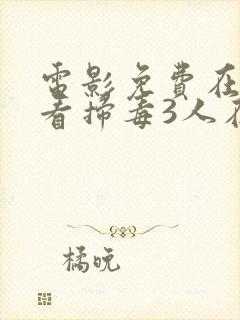 電影免費在
看掃毒3人在
橘晚